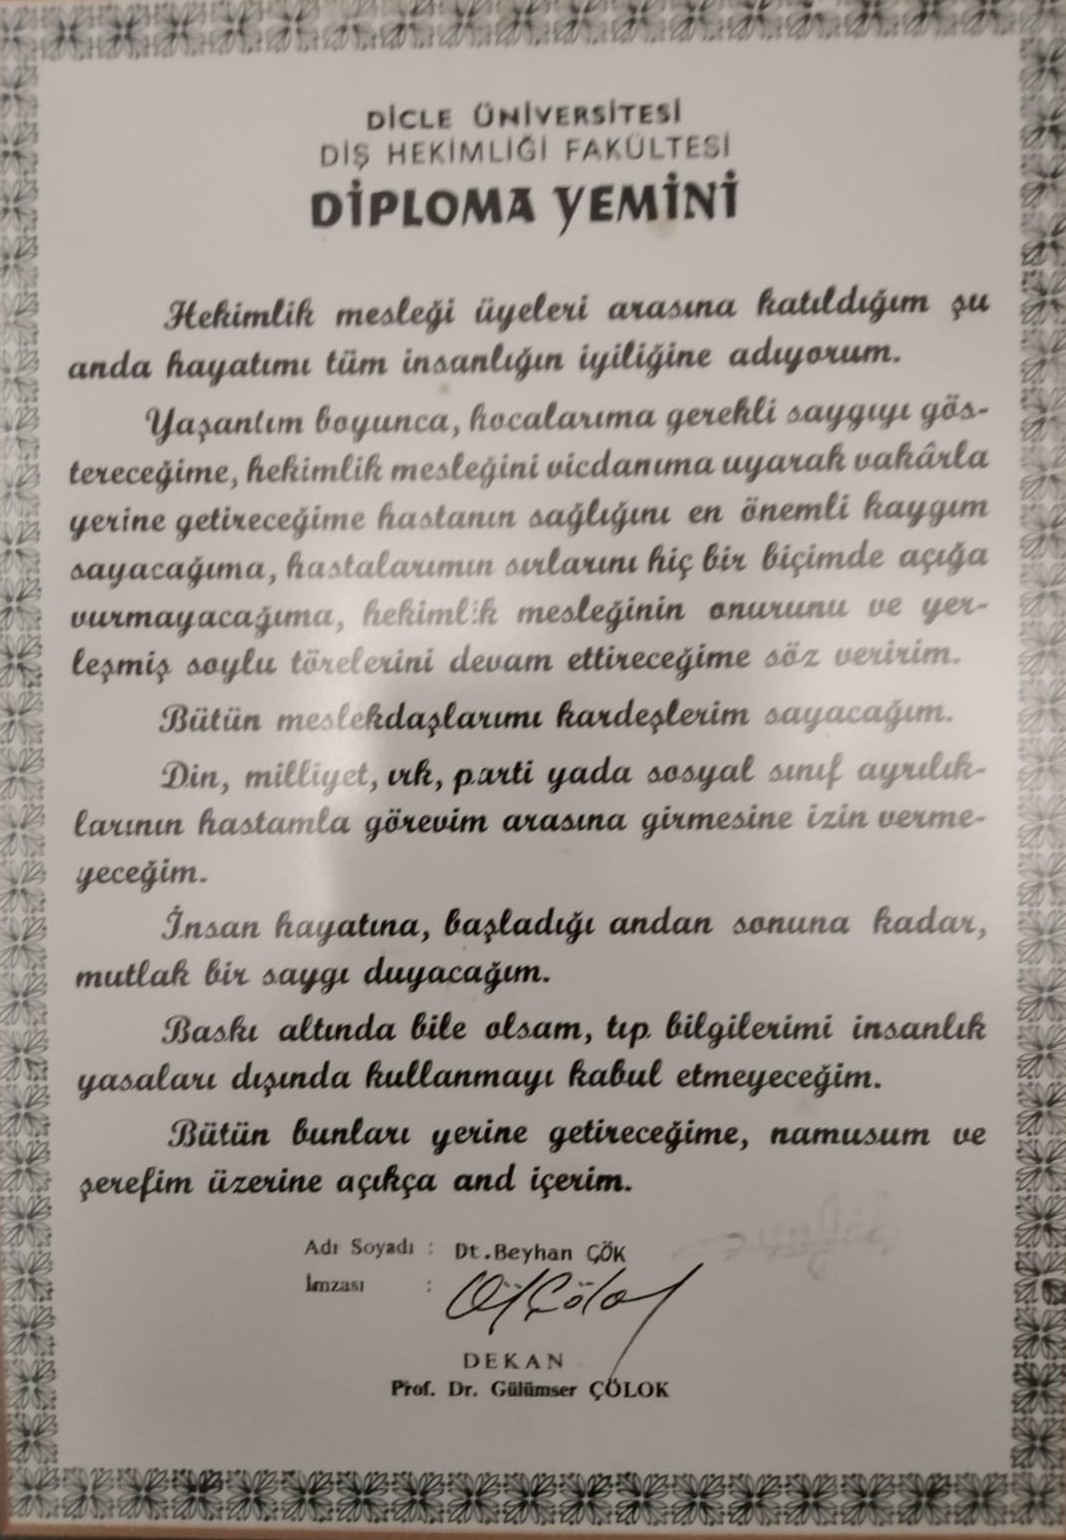 DİCLE ÜNİVERSİTESİ
DİŞ HEKİMLİĞİ FAKÜLTESİ
DİPLOMA YEMİNİ
Hekimlik mesleği üyeleri arasına katıldığım şu
anda hayatımı tüm insanlığın iyiliğine adıyorum.
Yaşantım boyunca, hocalarıma gerekli saygıyı gös-
tereceğime, hekimlik mesleğini vicdanıma uyarak vakârla
yerine getireceğime hastanın sağlığını en önemli kaygım
sayacağıma, hastalarımın sırlarını hiç bir biçimde açığa
vurmayacağıma, hekimlik mesleğinin onurunu ve yer-
leşmiş soylu törelerini devam ettireceğime söz veririm.
Bütün meslekdaşlarımı kardeşlerim sayacağım.
Din, milliyet, ırk, parti yada sosyal sınıf ayrılık-
larının hastamla görevim arasına girmesine izin verme-
yeceğim.
İnsan hayatına, başladığı andan sonuna kadar,
mutlak bir saygı duyacağım.
Baskı altında bile olsam, tıp bilgilerimi insanlık
yasaları dışında kullanmayı kabul etmeyeceğim.
Bütün bunları yerine getireceğime, namusum ve
şerefim üzerine açıkça and içerim.
Adı Soyadı : Dt.Beyhan ÇÖK
İmzası :
DEKAN
Prof. Dr. Gülümser ÇÖLOK